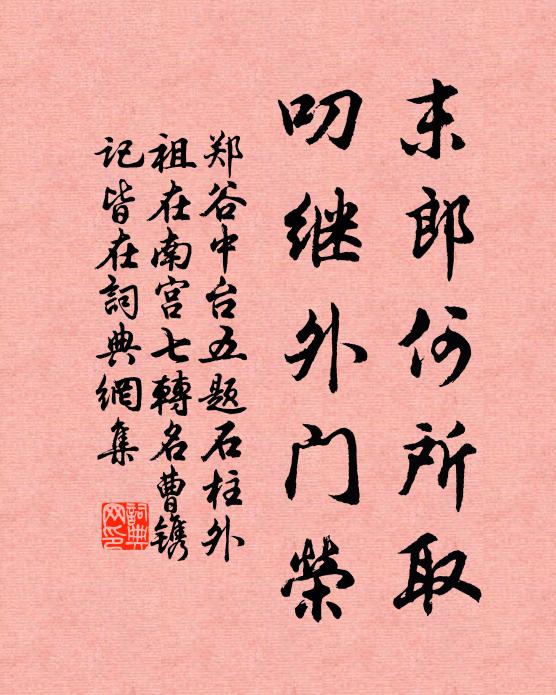 末郎何所取
叨继外门榮
郑谷中台五题石柱外
祖在南宫七轉名曹镌
记皆在詞典網集
詞典
网印